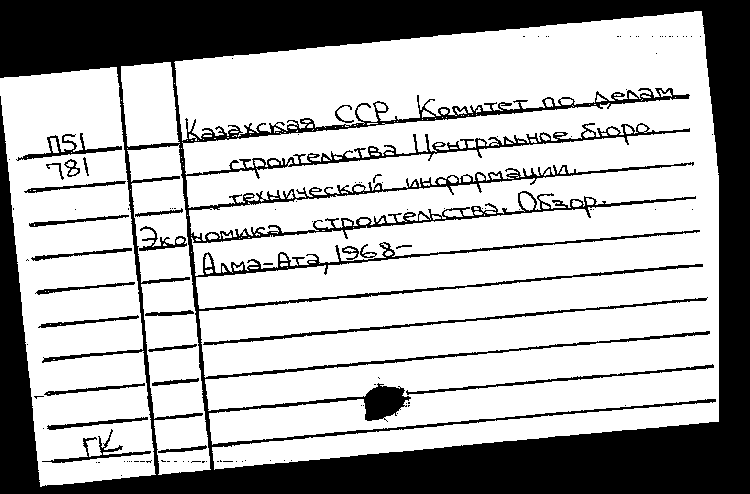 П51
781
Казахская ССР. Комитет по делам
строительства Центральное бюро
технической информации.
Экономика строительства. Обзор.
Алма-Ата, 1968-
ГК